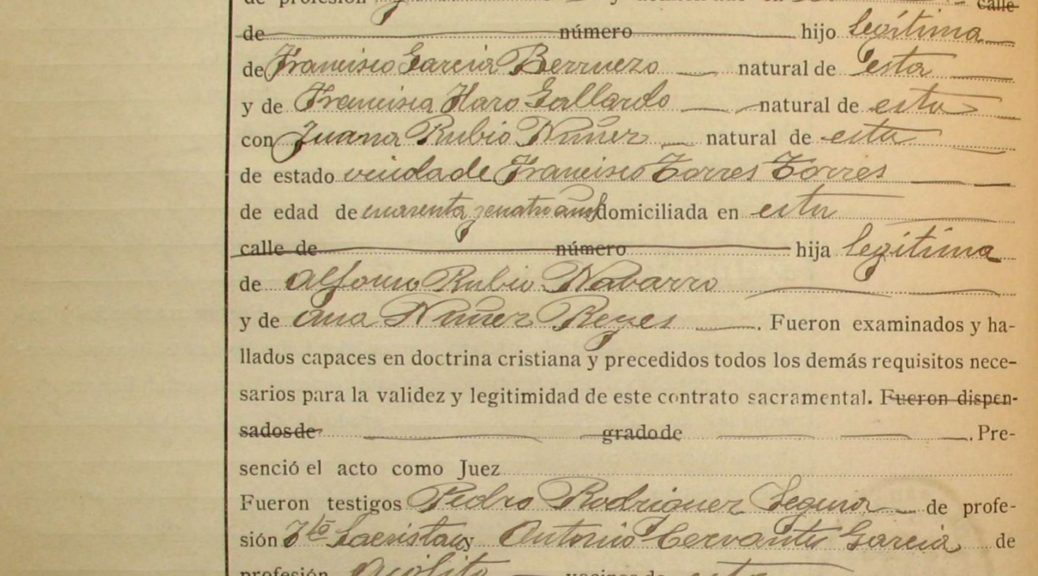 de profesión y
calle
de número hijo legítima
de Francisco García Berruezo natural de esta
y de Francisca Haro Gallardo natural de esta
con Juana Rubio Núñez natural de esta
de estado viuda de Francisco Torres Torres
de edad de cuarenta y cuatro años domiciliada en esta
calle de número hija legítima
de Alfonso Rubio Navarro
y de Ana Núñez Reyes . Fueron examinados y ha-
llados capaces en doctrina cristiana y precedidos todos los demás requisitos nece-
sarios para la validez y legitimidad de este contrato sacramental. Fueron dispen-
sados de grado de . Pre-
senció el acto como Juez
Fueron testigos Pedro Rodriguez Segura de profe-
sión Sacristan y Antonio Cervantes García de
profesión Acólito vecinos de esta